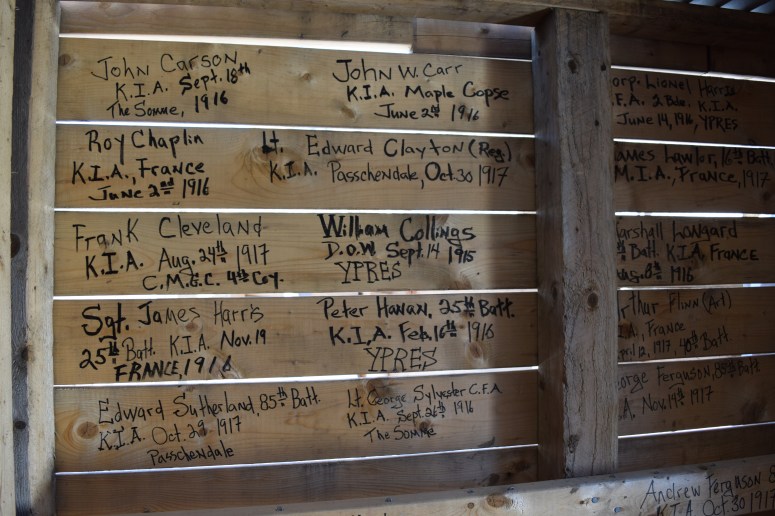 John Carson
K.I.A. Sept. 18th
The Somme, 1916
John W. Carr
K.I.A. Maple Copse
June 2nd 1916
Roy Chaplin
K.I.A., France
June 2nd 1916
Lt. Edward Clayton (Reg)
K.I.A. Passchendale, Oct. 30 1917
Frank Cleveland
K.I.A. Aug. 24th 1917
C.M.G.C. 4th Coy.
William Collings
D.O.W. Sept. 14 1915
YPRES
Sgt. James Harris
25th Batt. K.I.A. Nov. 19
FRANCE, 1916
Peter Hanan, 25th Batt.
K.I.A. Feb. 16th 1916
YPRES
Edward Sutherland, 85th Batt.
K.I.A. Oct. 29 1917
Passchendale
Lt. George Sylvester C.F.A
K.I.A. Sept. 26th 1916
The Somme
orp. Lionel Harris
F.A. 2 Bde. K.I.A.
June 14, 1916, YPRES
ames Lawlor, 16th Batt.
M.I.A., France, 1917
arshall Longard
Batt. K.I.A. FRANCE
1916
rthur Flinn (Art)
I.A., France
12, 1917, Batt
orge Ferguson, 85th Batt
A. Nov. 14th 1917
Andrew Ferguson
K.I.A. Oct. 30 1917